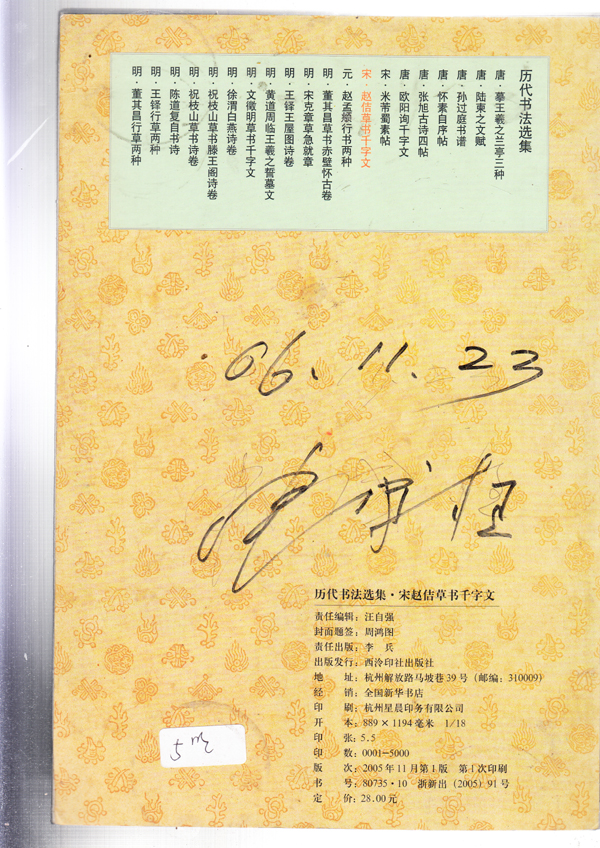 历代书法选集
唐·摹王羲之兰亭三种
唐·陆柬之文赋
唐·孙过庭书谱
唐·怀素自序帖
唐·张旭古诗四帖
唐·欧阳询千字文
宋·米芾蜀素帖
宋·赵佶草书千字文
元·赵孟頫行书两种
明·董其昌草书赤壁怀古卷
明·宋克章草急就章
明·王铎王屋图诗卷
明·黄道周临王羲之誓墓文
明·文徵明草书千字文
明·徐渭白燕诗卷
明·祝枝山草书滕王阁诗卷
明·祝枝山草书诗卷
明·陈道复自书诗
明·王铎行草两种
明·董其昌行草两种
06.11.23
历代书法选集·宋赵佶草书千字文
责任编辑：汪自强
封面题签：周鸿图
责任出版：李 兵
出版发行：西泠印社出版社
地 址：杭州解放路马坡巷39号（邮编：310009）
经 销：全国新华书店
印 刷：杭州星晨印务有限公司
开 本：889×1194毫米 1/18
印 张：5.5
印 数：0001-5000
版 次：2005年11月第1版 第1次印刷
书 号：80735·10 浙新出（2005）91号
定 价：28.00元
5元